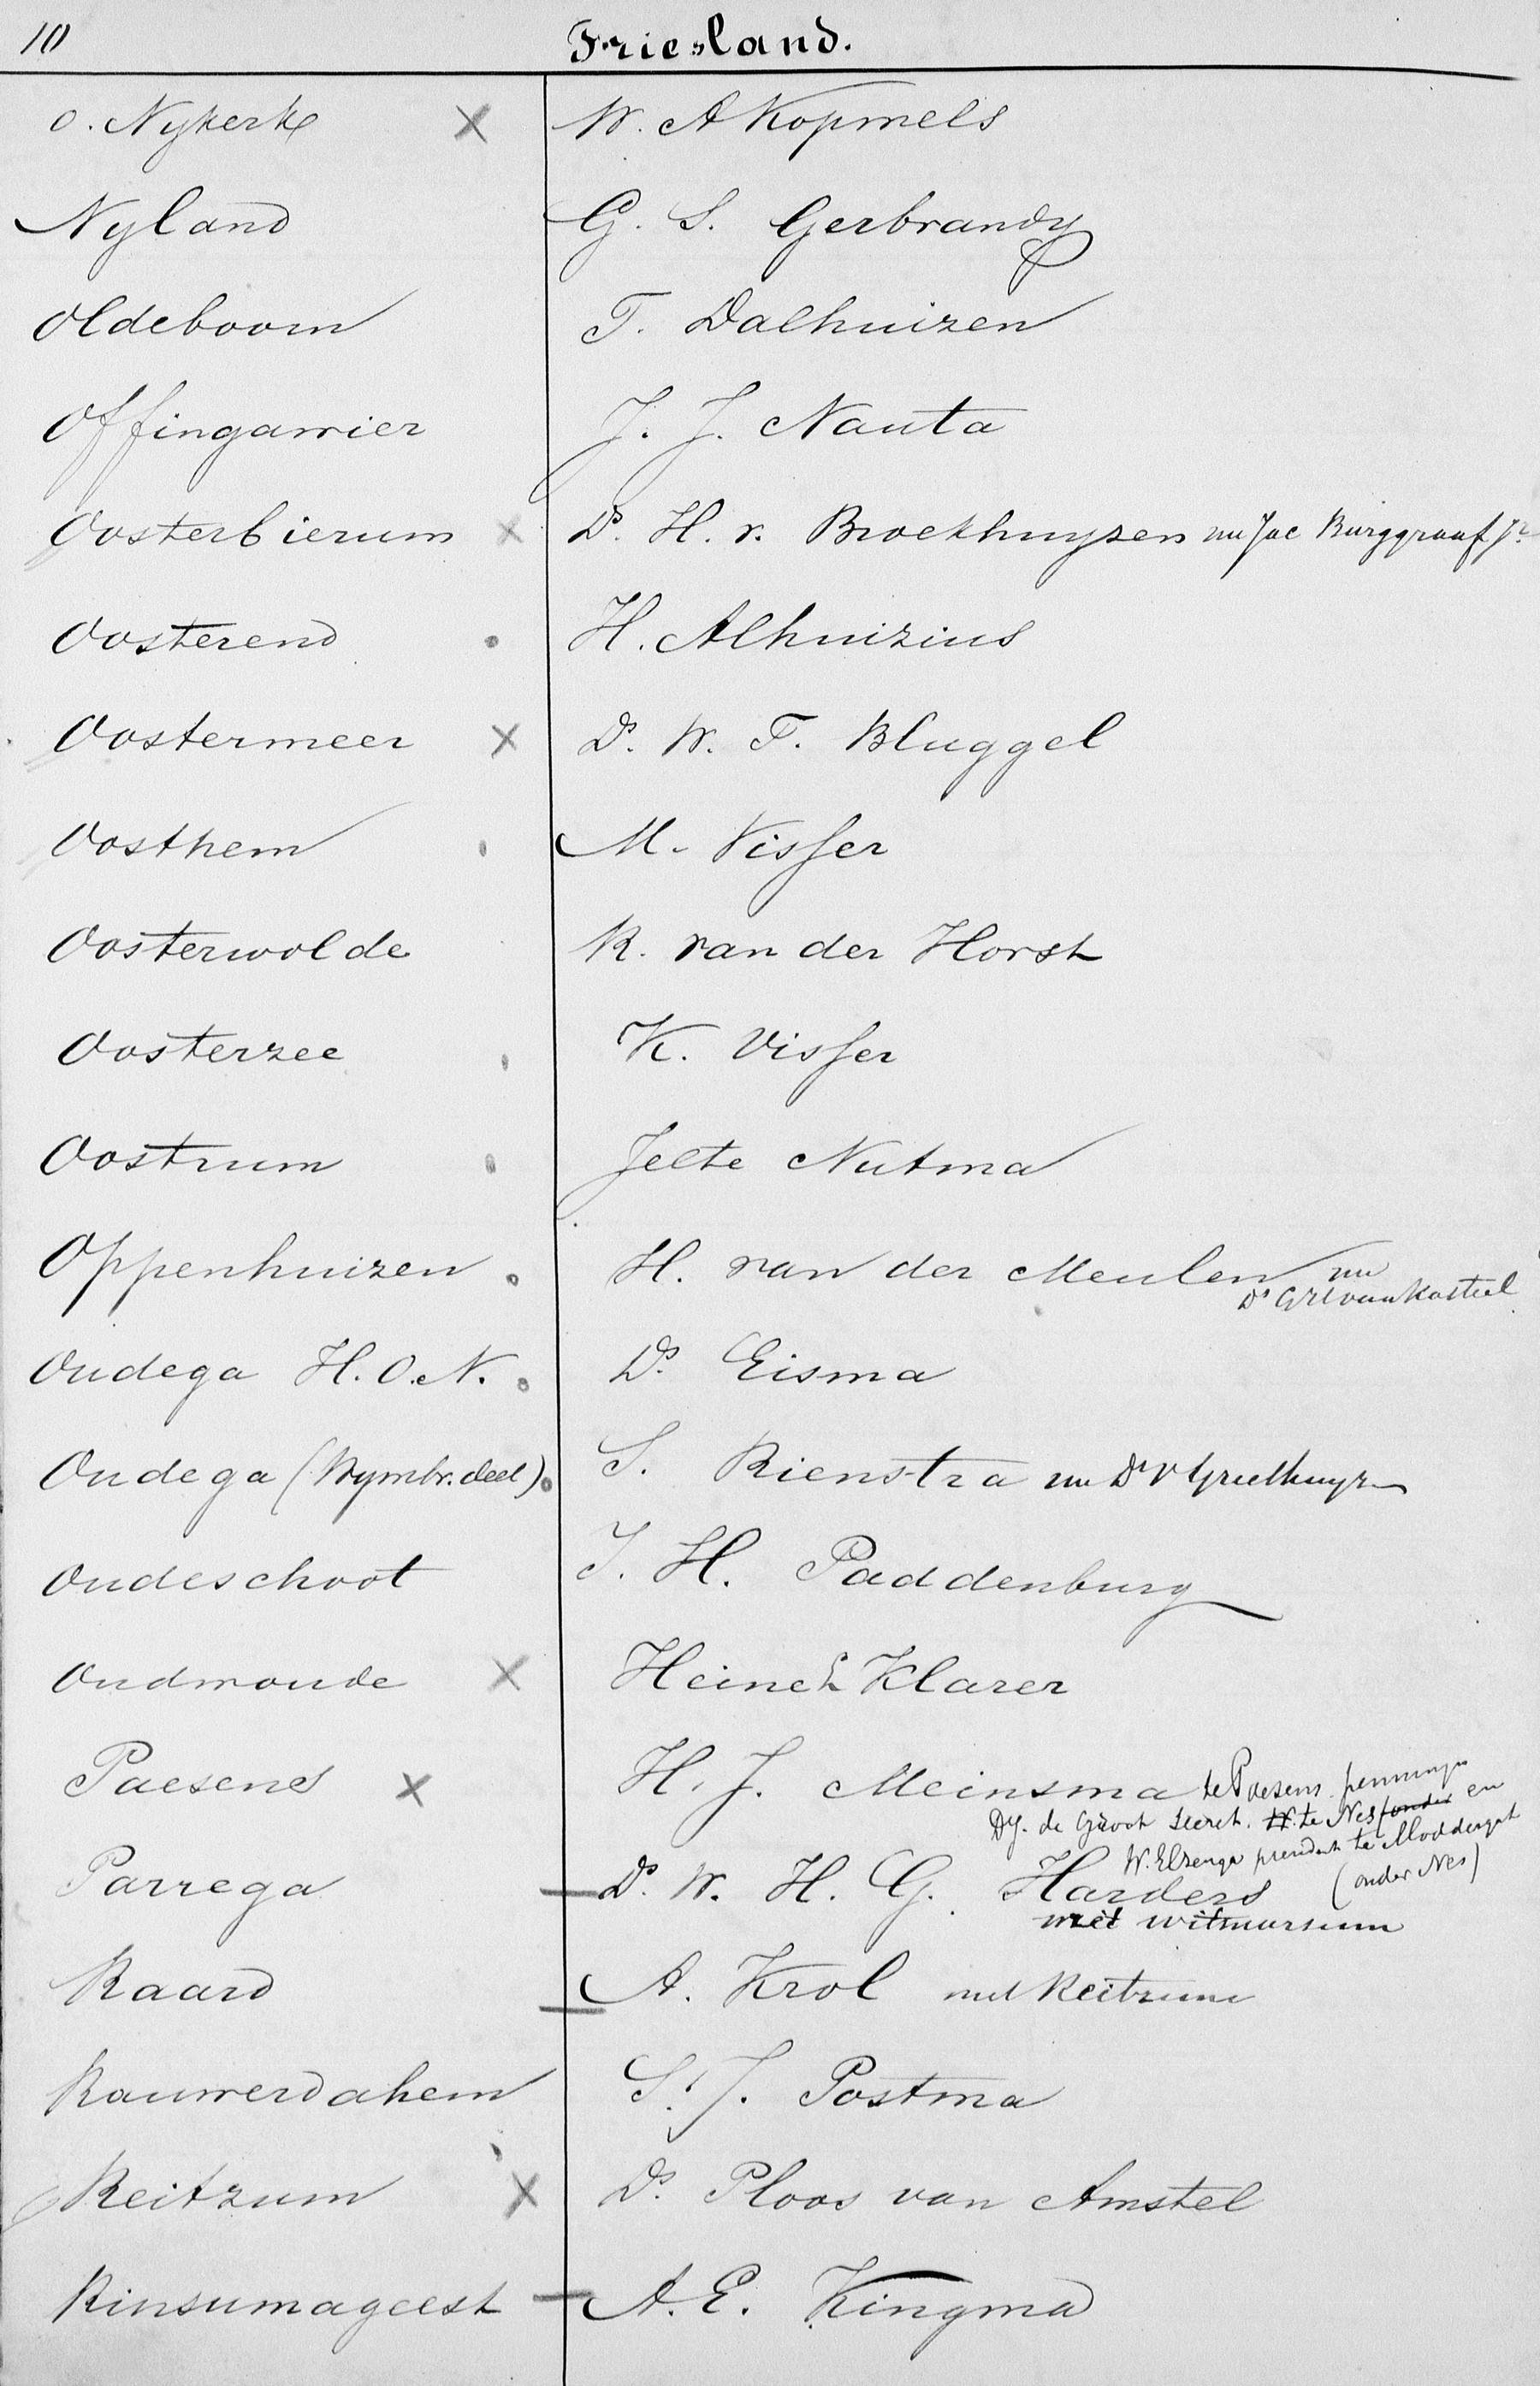 10 Friesland.
O. Nykerk × W. A Kopmels
Nyland G. S. Gerbrandy
Oldeboorn T. Dalhuizen
Offingawier J. J. Nauta
Oosterbierum × Ds. H. v. Broekhuyzen nu Jac Burggraaf Jr.
Oosterend . H. Alhuizius
Oostermeer × Ds. W. F. Bluggel
Oosthem . M. Visser
Oosterwolde R. van der Horst
Oosterzee . K. Visser
Oostrum . Jelte Nutma
Oppenhuizen . H. van der Meulen nu
Ds G R W van Kasteel
Oudega H. O. N. . Ds. Eisma
Oudega (Wymbr. deel) . S. Rienstra nu Ds V
Oudeschoot J. H. Paddenburg
Oudwoude × Heine Klarer
Paesens × H. J. Meinsma te Paesens penningm
Dy. de Groot secret. te Nes en
W. Elzenga president te Moddergat
(onder Nes)
Parrega — Ds. W. H. G. Harders
met Witmarsum
Raard — A. Krol met Reitzum
Rauwerdahem S. J. Postma
Reitzum × Ds. Ploos van Amstel
Rinsumageest — A. E. Kingma